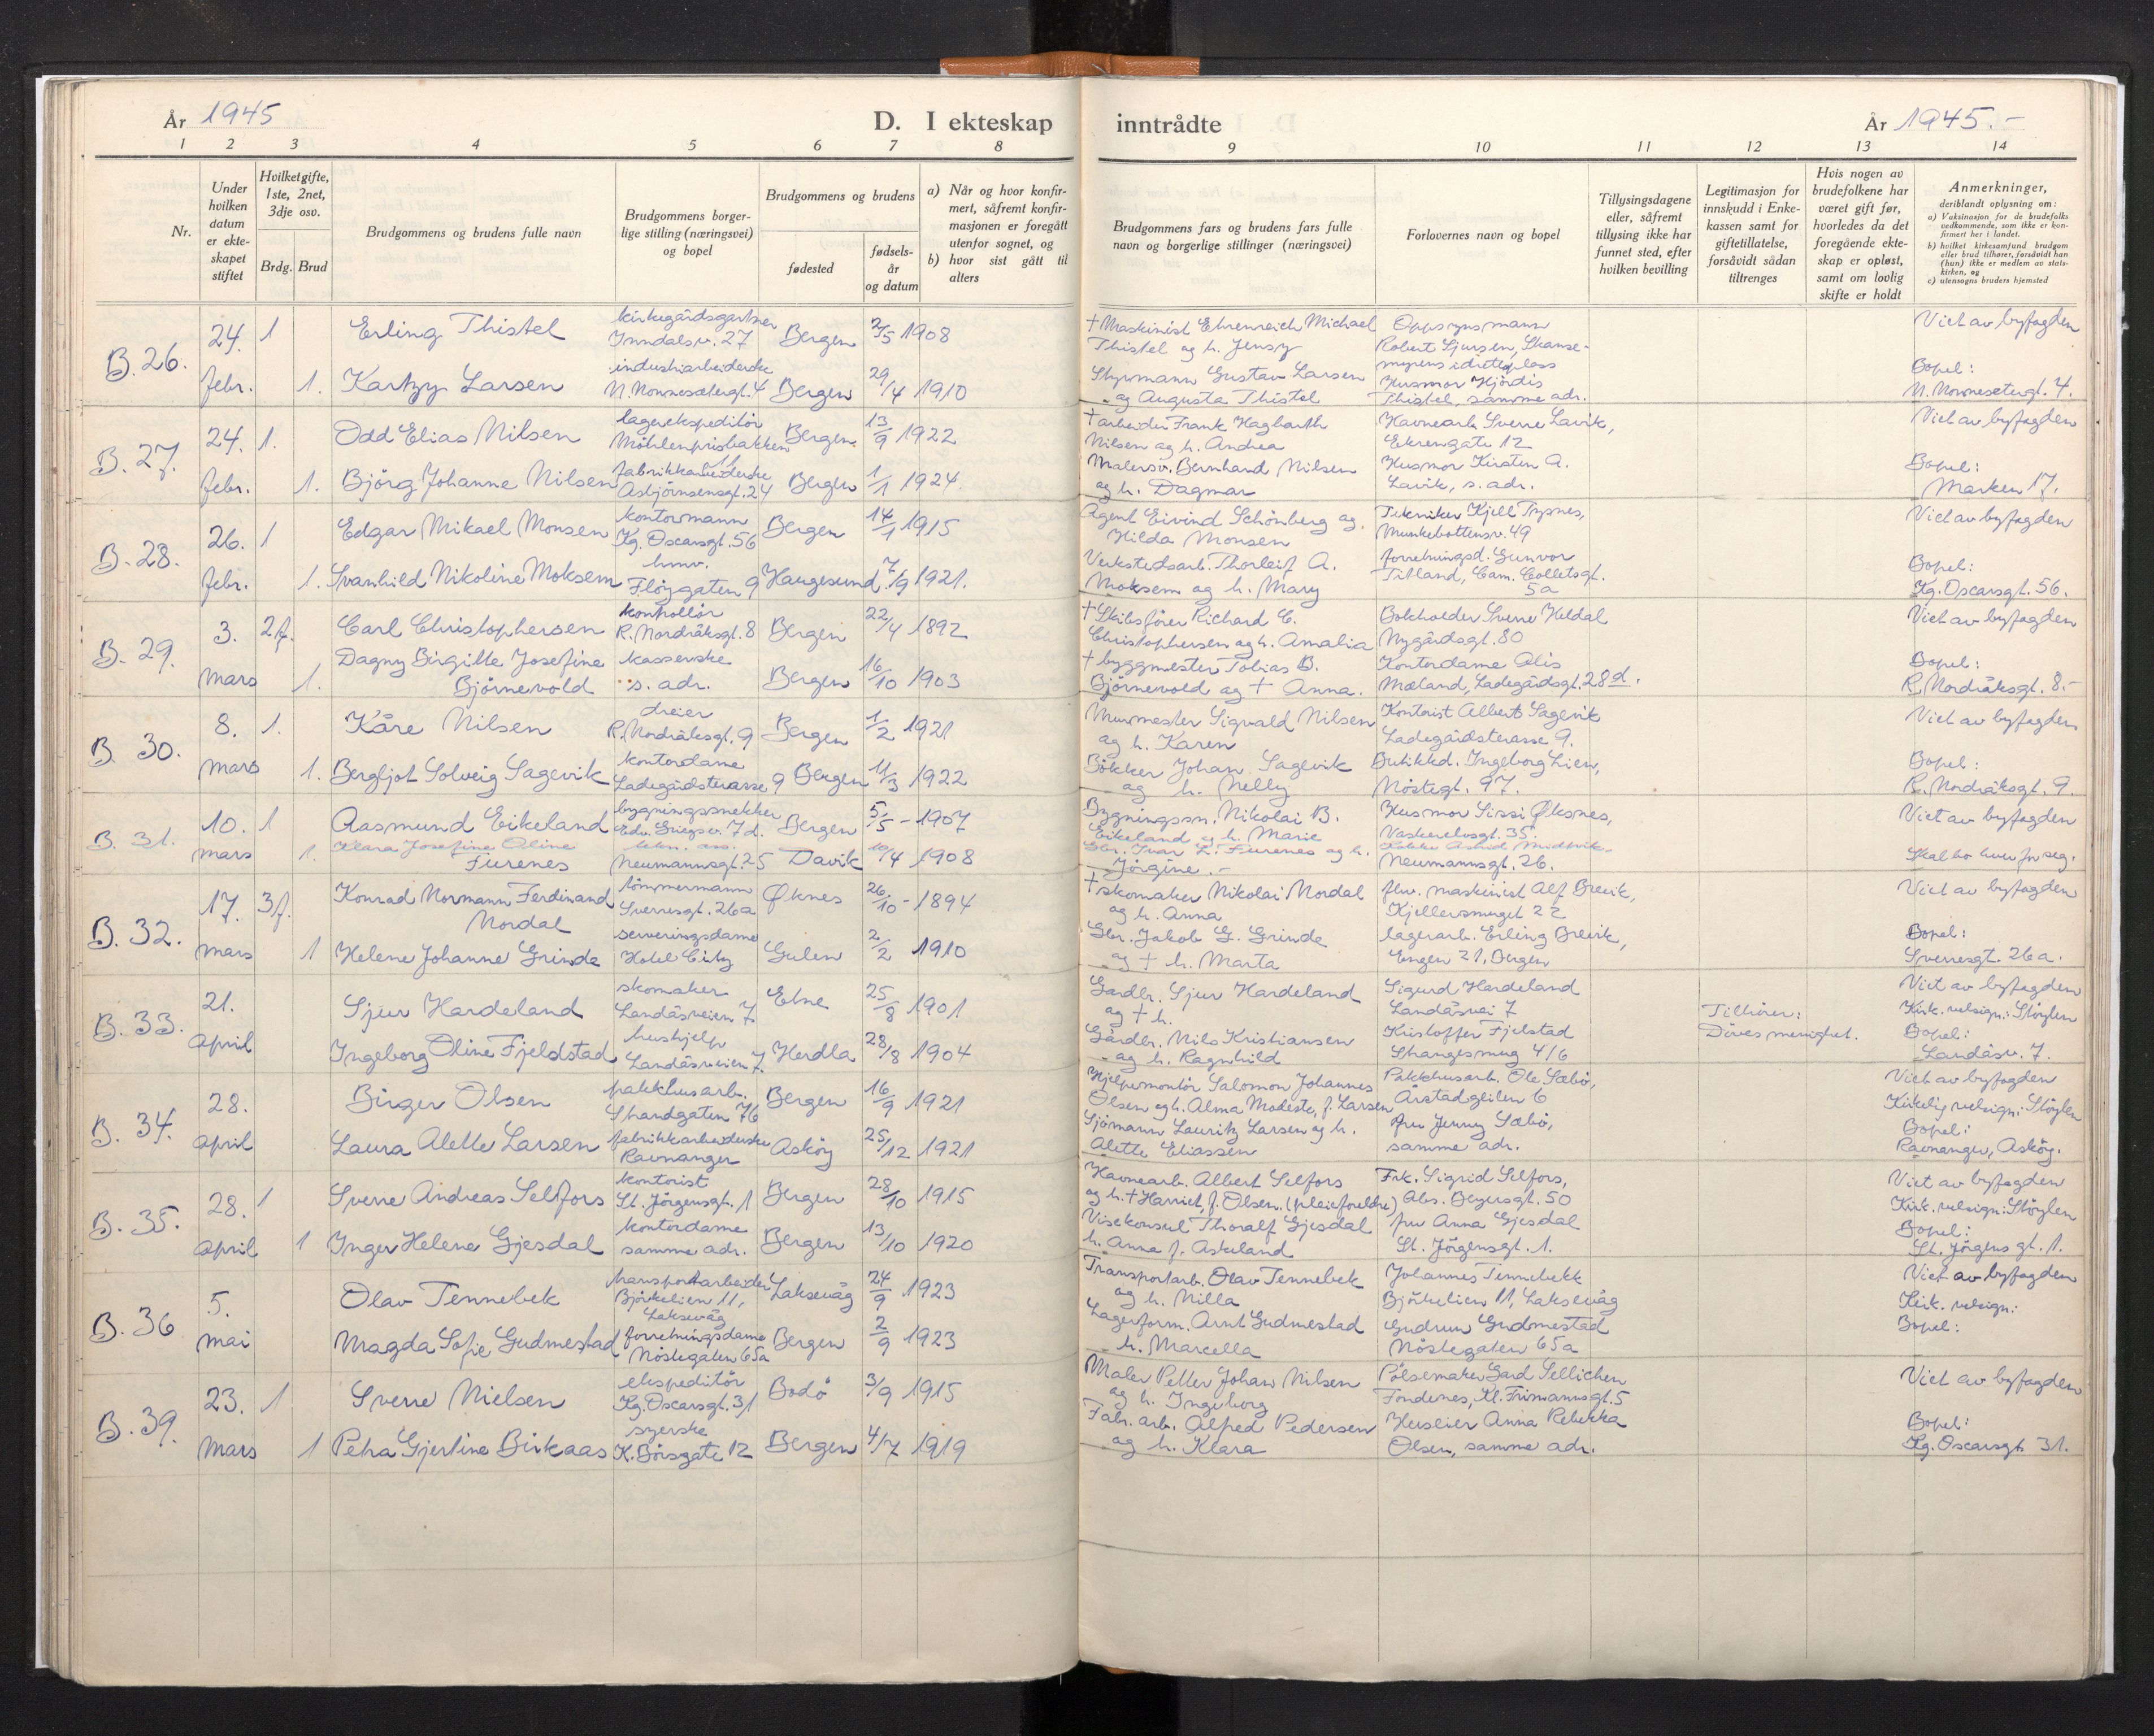 År 1945
D. I ekteskap
inntrådte
År 1945.-
1 2 3 4 5 6 7 8
9 10 11 12 13 14
Nr.
Under
hvilken
datum
er ekte-
skapet
stiftet
Hvilketgifte,
1ste, 2net,
3dje osv.
Brdg.
Brud
Brudgommens og brudens fulle navn
Brudgommens borger-
lige stilling (næringsvei)
og bopel
Brudgommens og brudens
fødested
fødsels-
år
og datum
a) Når og hvor konfir-
mert, såfremt konfir-
masjonen er foregått
utenfor sognet, og
b) hvor sist gått til
alters
Brudgommens fars og brudens fars fulle
navn og borgerlige stillinger (næringsvei)
Forlovernes navn og bopel
Tillysingsdagene
eller, såfremt
tillysing ikke har
funnet sted, efter
hvilken bevilling
Legitimasjon for
innskudd i Enke-
kassen samt for
giftetillatelse,
forsåvidt sådan
tiltrenges
Hvis nogen av
brudefolkene har
været gift før,
hvorledes da det
foregående ekte-
skap er opløst,
samt om lovlig
skifte er holdt
Anmerkninger,
deriblandt oplysning om:
a) Vaksinasjon for de brudefolks
vedkommende, som ikke er kon-
firmert her i landet.
b) hvilket kirkesamfund brudgom
eller brud tilhører, forsåvidt han
(hun) ikke er medlem av stats-
kirken, og
c) utensogns bruders hjemsted
B. 26.
24.
febr.
1
1.
Erling Thistel
kirkegårdsgartner
Inndalsv. 27
Bergen
2/5 1908
Kartzy Larsen
industriarbeiderske
N. Nonnesetergt. 4
Bergen
29/4 1910
+ Maskinist Ehrenreich Michael
Thistel og h. Jensy
Styrmann Gustav Larsen
og Augusta Thistel
Oppsynsmann
Robert Sjursen, Skanse-
myrens idrettsplass
Husmor Hjördis
Thistel, samme adr.
Viet av byfogden
Bopel:
N. Nonnesetergt. 4.
B. 27.
24.
febr.
1.
1.
Odd Elias Nilsen
lagerekspeditör
Möhlenprisbakken 11
Bergen
13/9 1922
Björg Johanne Nilsen
fabrikkarbeiderske
Asbjörnsensgt. 24
Bergen
1/1 1924.
+ arbeider Frank Hagbarth
Nilsen og h. Andrea
Malersv. Bernhard Nilsen
og h. Dagmar
Havnearb. Sverre Lavik,
Ekrengate 12
Husmor Kirsten A.
Lavik, s. adr.
Viet av byfogden
Bopel:
Marken 17.
B. 28.
26.
febr.
1
1.
Edgar Mikael Monsen
kontormann
Kg. Oscarsgt. 56
Bergen
14/1 1915
Svanhild Nikoline Moksem
hmv.
Flöygaten 9
Haugesund
7/9 1921.
Agent Eivind Schönberg og
Hilda Monsen
Verkstedsarb. Thorleif A.
Moksem og h. Mary
Tekniker Kjell Trysnes,
Munkebottensv. 49
forretningsd. Gunvor
Titland, Cam. Colletsgt.
5a
Viet av byfogden
Bopel:
Kg. Oscarsgt. 56.
B. 29.
3.
mars
2f.
1.
Carl Christophersen
kontrollör
R. Nordråksgt. 8
Bergen
22/4 1892
Dagny Birgitte Josefine
Björnevold
kasserske
s. adr.
Bergen
16/10 1903
+ Skibsförer Richard C.
Christophersen og h. Amalia
+ byggmester Tobias B.
Björnevold og + Anna.
Bokholder Sverre Heldal
Nygårdsgt. 80
Kontordame Alis
Mæland, Ladegårdsgt. 28d.
Viet av byfogden
Bopel:
R. Nordråksgt. 8.-
B. 30.
8.
mars
1.
1.
Kåre Nilsen
dreier
R. Nordråksgt. 9
Bergen
1/2 1921
Bergljot Solveig Sagevik
kontordame
Ladegårdsterasse 9
Bergen
11/3 1922
Murmester Sigvald Nilsen
og h. Karen
Bökker Johan Sagevik
og h. Nelly
Kontorist Albert Sagevik
Ladegårdsterasse 9.
Butikkd. Ingeborg Lien,
Nöstegt. 97.
Viet av byfogden
Bopel:
R. Nordråksgt. 9.
B. 31.
10.
mars
1
1.
Aasmund Eikeland
bygningssnekker
Edv. Griegsv. 7d.
Bergen
5/5 - 1907
Klara Josefine Oline
Furenes
tekn. ass.
Neumannsgt. 25
Davik
10/4 1908
Bygningssn. Nikolai B.
Eikeland og h. Marie
Gbr. Ivar L. Furenes og h.
Jörgine.-
Husmor Sissi Øksnes,
Vaskerelvsgt. 35.
Astrid Midtvik
Neumannsgt. 26.
Viet av byfogden
Skal bo hver for seg.
B. 32.
17.
mars
3f.
1
Konrad Normann Ferdinand
Nordal
tömmermann
Sverresgt. 26a
Øknes
26/10 - 1894
Helene Johanne Grinde
serveringsdame
Hotel City
Gulen
2/2 1910
+ skomaker Nikolai Nordal
og h. Anna
Gbr. Jakob G. Grinde
og + h. Marta
fhv. maskinist Alf Brevik,
Kjellersmuget 22
lagerarb. Erling Brevik,
Engen 21, Bergen
Viet av byfogden
Bopel:
Sverresgt. 26a.
B. 33.
21.
april
Sjur Hardeland
skomaker
Landåsveien 7
Etne
25/8 1901
Ingeborg Oline Fjeldstad
hushjelp
Landåsveien 7.
Herdla
28/8 1904
Gardbr. Sjur Hardeland
og + h.
Gårdbr. Nils Kristiansen
og h. Ragnhild
Sigurd Hardeland
Landåsvei 7
Kristoffer Fjelstad
Stangesmug 4/6
Tilhörer:
Döves menighet.
Viet av byfogden
Kirk. velsign.: Stöylen
Bopel:
Landåsv. 7.
B. 34.
28.
april
Birger Olsen
pakkhusarb.
Strandgaten 76
Bergen
16/9 1921
Laura Alette Larsen
fabrikkarbeiderske
Ravnanger
Asköy
25/12 1921
Hjelpemontör Salomon Johannes
Olsen og h. Alma Modeste, f. Larsen
Sjömann Lauritz Larsen og h.
Alette Eliassen
Pakkhusarb. Ole Sæbö,
Årstadgeilen 6
fru Jenny Sæbö,
samme adr.
Viet av byfogden
Kirkelig velsign.: Stöylen
Bopel:
Ravnanger, Asköy.
B. 35.
28.
april
1
1
Sverre Andreas Selfors
kontorist
St. Jörgensgt. 1
Bergen
28/10 1915
Inger Helene Gjesdal
kontordame
samme adr.
Bergen
13/10 1920
Havnearb. Albert Selfors
og h. + Harriet, f. Olsen. (pleieforeldre)
Visekonsul Thoralf Gjesdal
h. Anna f. Askeland
Frk. Sigrid Selfors,
Abs. Beyersgt. 50
fru Anna Gjesdal
St. Jörgensgt. 1.
Viet av byfogden
Kirk. velsign.: Stöylen
Bopel:
St. Jörgens gt. 1.
B. 36
5.
mai
Olav Tennebek
transportarbeider
Björkelien 11,
Laksevåg
Laksevåg
24/9 1923
Magda Sofie Gudmestad
forretningsdame
Nöstegaten 65a
Bergen
2/9 1923
Transportarb. Olav Tennebek
og h. Milla
Lagerform. Arnt Gudmestad
h. Marcella
Johannes Tennebekk
Björkelien 11, Laksevåg
Gudrun Gudmestad
Nöstegaten 65a
Viet av byfogden
Kirk. velsign.:
Bopel:
B. 39.
23.
mars
1
1
Sverre Nielsen
ekspeditör
Kg. Oscarsgt. 31
Bodö
3/9 1915
Petra Gjertine Birkaas
syerske
K. Börsgate 12
Bergen
4/7 1919
Maler Petter Johan Nilsen
og h. Ingeborg
Fabr. arb. Alfred Pedersen
og h. Klara
Pölsemaker Gard Sellichen
Fondenes, Kl. Frimannsgt. 5
Huseier Anna Rebekka
Olsen, samme adr.
Viet av byfogden
Bopel:
Kg. Oscarsgt. 31.